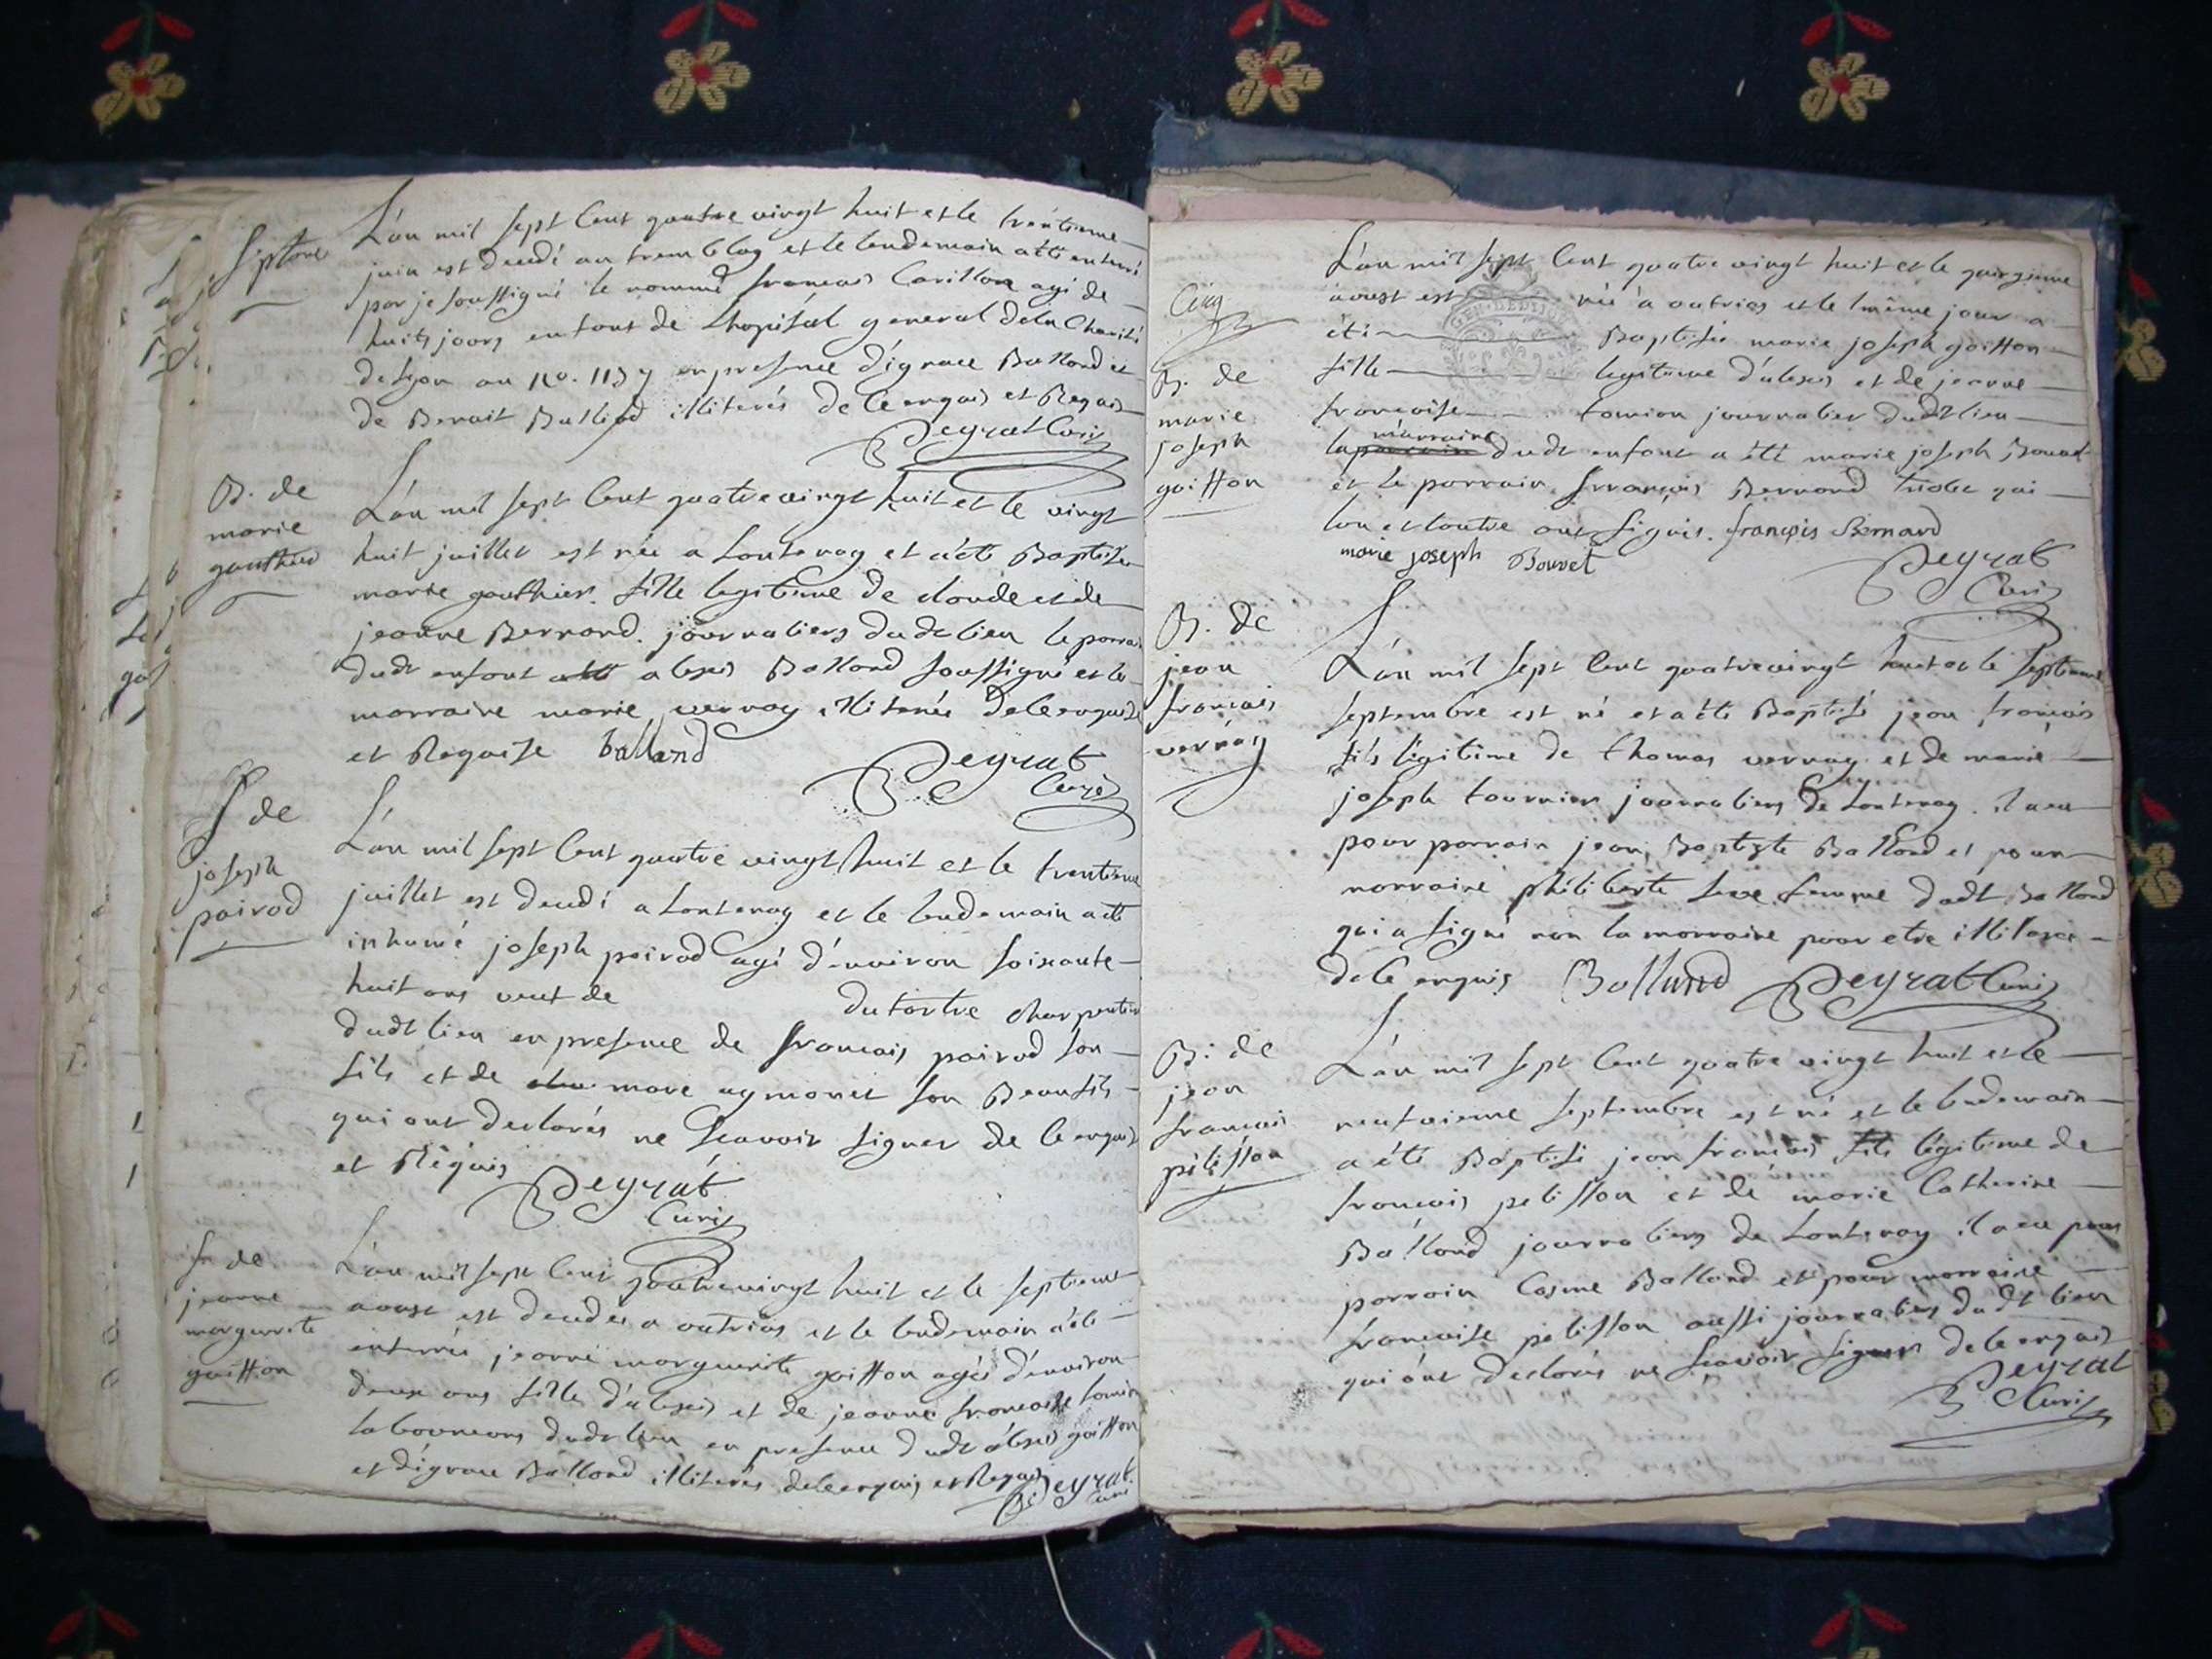 Sépture
L'an mil sept cent quatre vingt huit et le trentieme
juin est decedé au tremblay et le lendemain a été enterré
par je soussigné le nommé francois Carillon agé de
huits jours enfant de Lhopital general de la Charité
de Lyon au no. 1137 en presence d'ignace Balland et
de Benoit Balland illiterés de ce enquis et Requis
Peyrat Curé
B. de
marie
gauthier
L'an mil sept cent quatre vingt huit et le vingt
huit juillet est née a Lontenay et a été Baptisée
marie gauthier fille legitime de claude et de
jeanne Bernard journaliers dudt lieu le parrain
dudt enfant a été alexis Balland soussigné et la
marraine marie vernay illiterée de ce enquise
et Requise balland
Peyrat
Curé
S de
joseph
poirod
L'an mil sept cent quatre vingt huit et le trentieme
juillet est decedé a Lontenay et le lendemain a été
inhumé joseph poirod agé d'environ soixante
huit ans veuf de dutartre charpentier
dudt lieu en presence de francois poirod son
fils et de marc aymonet son Beaufils
qui ont declarés ne scavoir signer de ce enquis
et Réquis
Peyrat
Curé
S. de
jeanne
marguerite
goitton
L'an mil sept cent quatre vingt huit et le septieme
aoust est decedée a outrias et le lendemain a été
enterrée jeanne marguerite goitton agée d'environ
deux ans fille d'alexis et de jeanne francoise tomion
laboureurs dudt lieu en presence dudt alexis goitton
et d'ignace Balland illiterés de ce enquis et Requis
Peyrat
curé
Cinq
B. de
marie
joseph
goitton
L'an mil sept cent quatre vingt huit et le quinzieme
aoust est née a outrias et le même jour a
été Baptisée marie joseph goitton
fille legitime d'alexis et de jeanne
francoise tomion journalier dudt lieu
la marraine dudt enfant a été marie joseph Bouvet
et le parrain francois Bernard qui
l'un et l'autre ont signés. françois Bernard
marie joseph Bouvet
Peyrat
Curé
B. de
jean
francois
vernay
L'an mil sept cent quatre vingt huit et le septieme
septembre est né et a été Baptisé jean francois
fils légitime de thomas vernay et de marie
joseph tournier journaliers de Lontenay. il a eu
pour parrain jean Baptiste Balland et pour
marraine philiberte seve femme dudt Balland
qui a signé non la marraine pour etre illiterée
de ce enquis Balland Peyrat Curé
B. de
jean
francois
pélisson
L'an mil sept cent quatre vingt huit et le
neufvieme septembre est né et le lendemain
a été Baptisé jean francois fils légitime de
francois pelisson et de marie Catherine
Balland journaliers de Lontenay il a eu pour
parrain Cosme Balland et pour marraine
francoise pelisson aussi journaliers dudt lieu
qui ont declarés ne scavoir signer de ce enquis
Peyrat
Curé